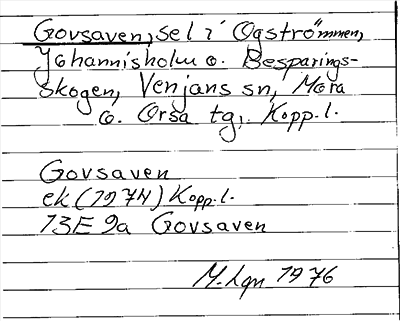 Govsaven, sel i Ogströmmen,
Johannisholm o. Besparings-
skogen, Venjans sn, Mora
o. Orsa tg, Kopp. l.
Govsaven
ek (1974) Kopp. l.
13E 9a Govsaven
M. Lgn 1976